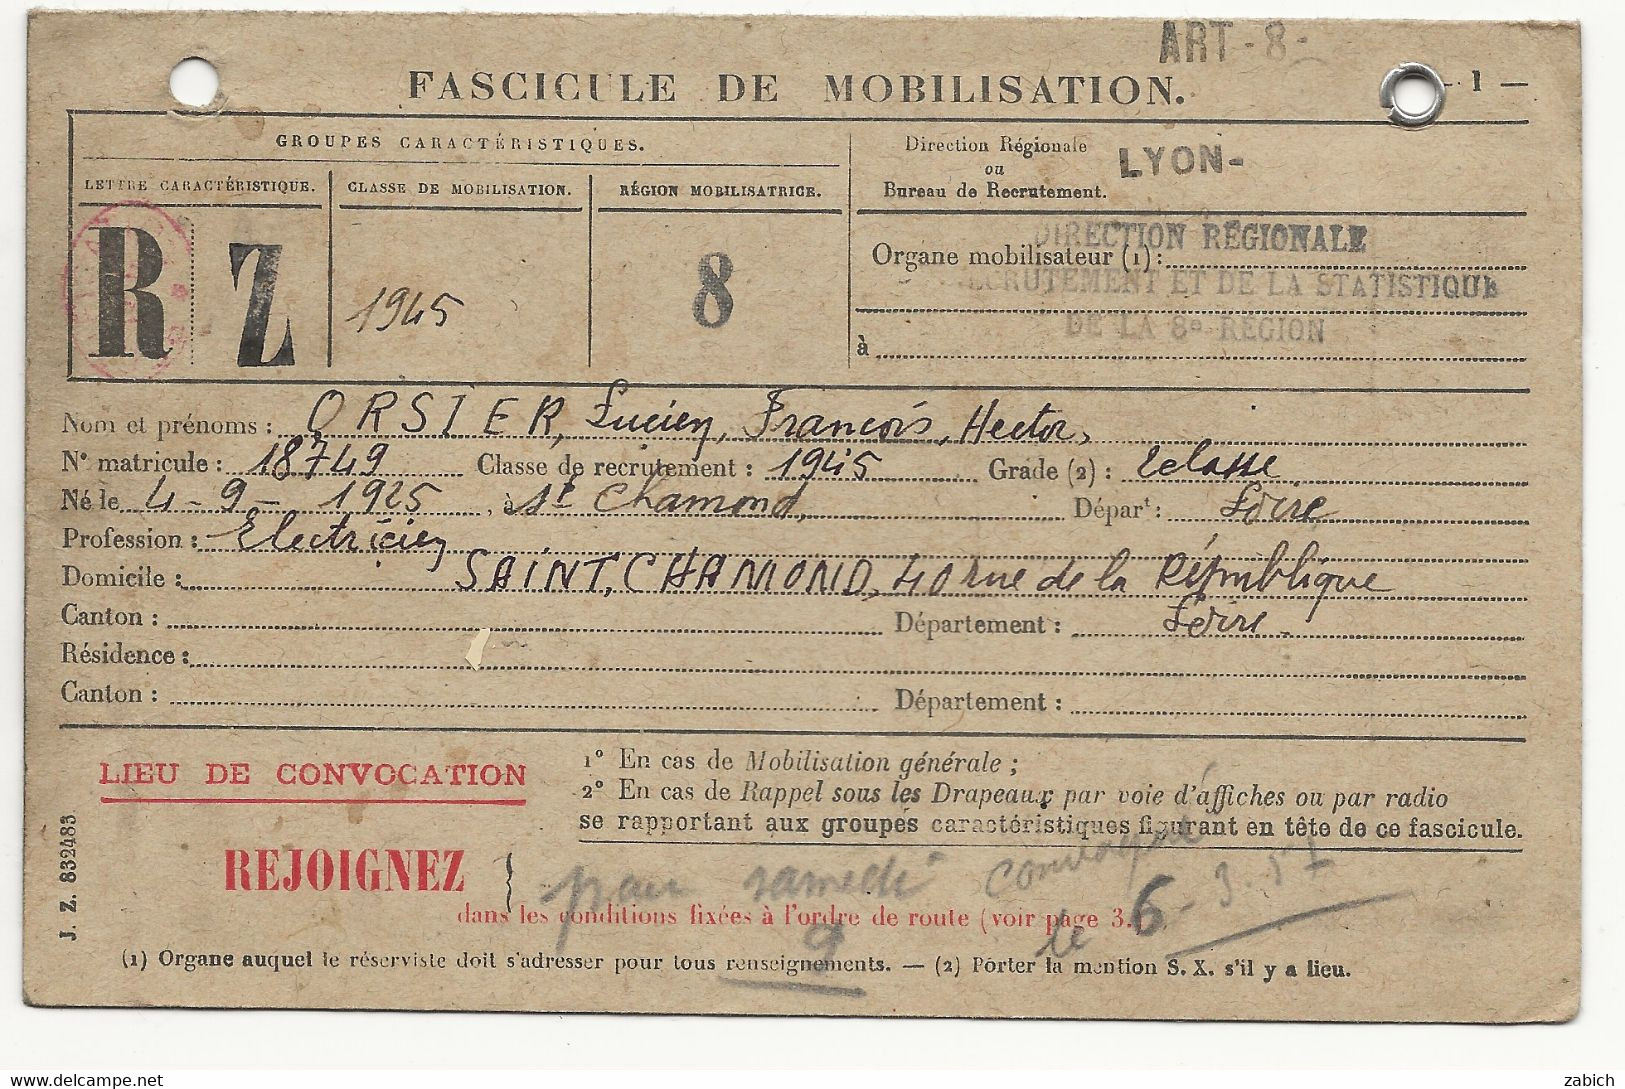 ART - 8 -
FASCICULE DE MOBILISATION.
- 1 -
GROUPES CARACTÉRISTIQUES.
LETTRE CARACTÉRISTIQUE. CLASSE DE MOBILISATION. RÉGION MOBILISATRICE.
R Z 1945 8
Direction Régionale
ou
Bureau de Recrutement.
LYON-
DIRECTION RÉGIONALE
Organe mobilisateur (1) :
RECRUTEMENT ET DE LA STATISTIQUE
DE LA 8e RÉGION
à
Nom et prénoms : ORSIER, Lucien, François, Hector,
N° matricule : 18749 Classe de recrutement : 1945 Grade (2) : 2classe
Né le 4-9-1925, à St Chamond, Départt : Loire
Profession : Electricien
Domicile : SAINT, CHAMOND, 40 rue de la République
Canton : Département : Loire
Résidence :
Canton : Département :
LIEU DE CONVOCATION
1° En cas de Mobilisation générale ;
2° En cas de Rappel sous les Drapeaux par voie d'affiches ou par radio
se rapportant aux groupes caractéristiques figurant en tête de ce fascicule.
REJOIGNEZ }
pour samedi convoqué
le 6-3-51
dans les conditions fixées à l'ordre de route (voir page 3.)
9
(1) Organe auquel le réserviste doit s'adresser pour tous renseignements. — (2) Porter la mention S. X. s'il y a lieu.
J. Z. 832483
zabich